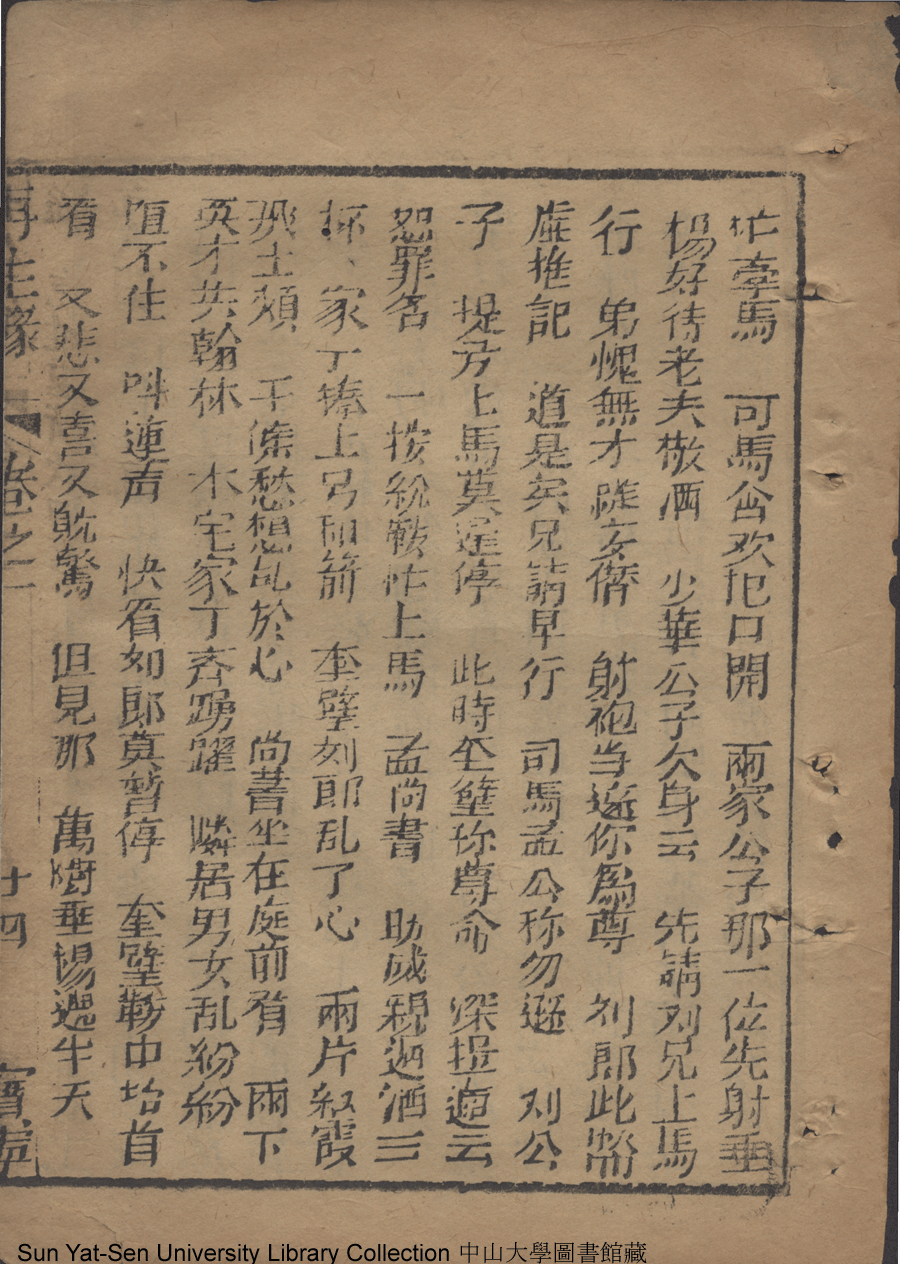 忙牽馬　司馬含欢把口開　兩家公子那一位先射垂
楊好待老夫敬酒　少華公子欠身云　先請刘兄上馬
行　弟愧無才難女儕　射袍当遜你為尊　刘郎此際
虛推記　道是矣兄請早行　司馬孟公称勿遜　刘公
子　提方上馬莫迟停　此時奎壁称尊命　深揖遁云
恕罪名　一按紛鞍忙上馬　孟尚書　助威親迊酒三
杯、家丁捧上弓和箭　奎壁刘郎乱了心　兩片紅霞
飛士頰　千條愁想乱於心　尚書坐在庭前看　兩下
英才共翰林　木宅家丁齐踴躍　隣居男女乱紛紛
喧不住　呌連声　快看如郎莫暫停　奎璧鞍中抬首
看　又悲又喜又躭驚　但見那　萬樹垂楊遮半天
再生緣　卷之二　十四